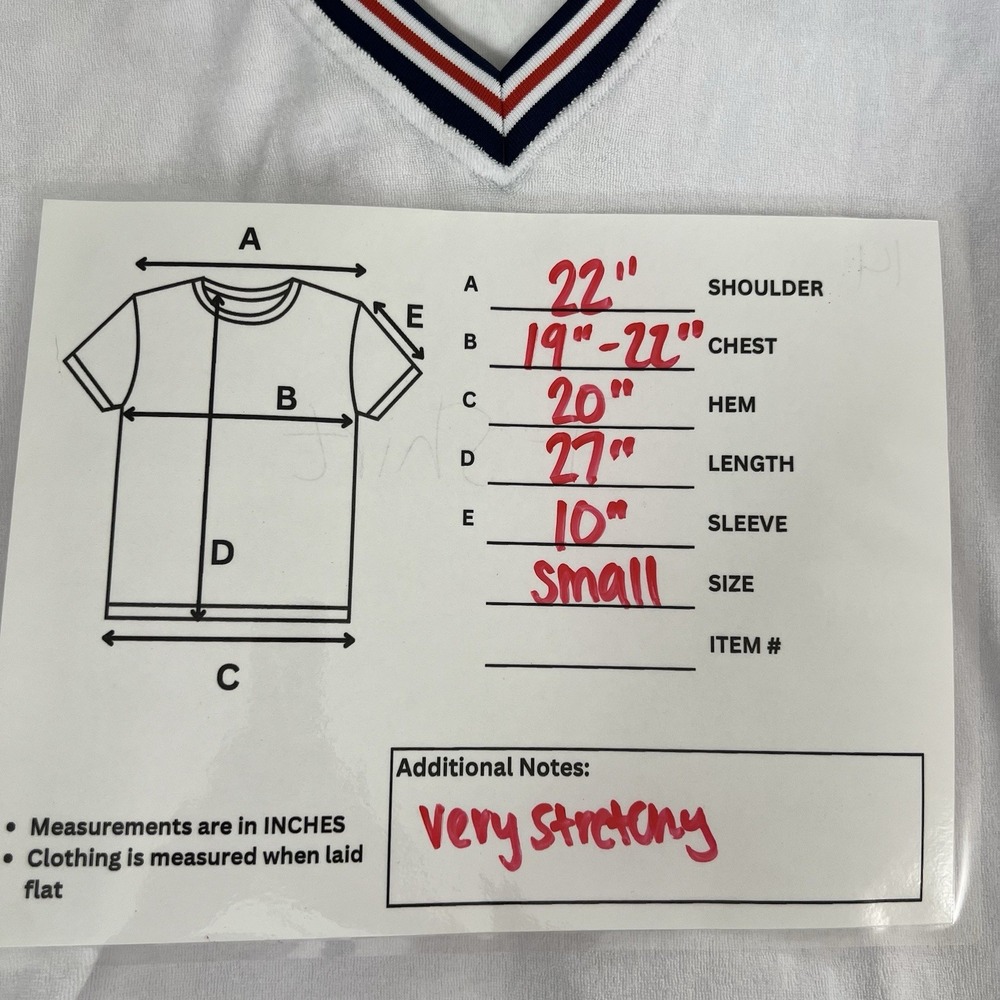 A
E
B
D
C
A 22" SHOULDER
B 19"-22" CHEST
C 20" HEM
D 27" LENGTH
E 10" SLEEVE
small SIZE
ITEM #
Additional Notes:
very stretchy
• Measurements are in INCHES
• Clothing is measured when laid
flat